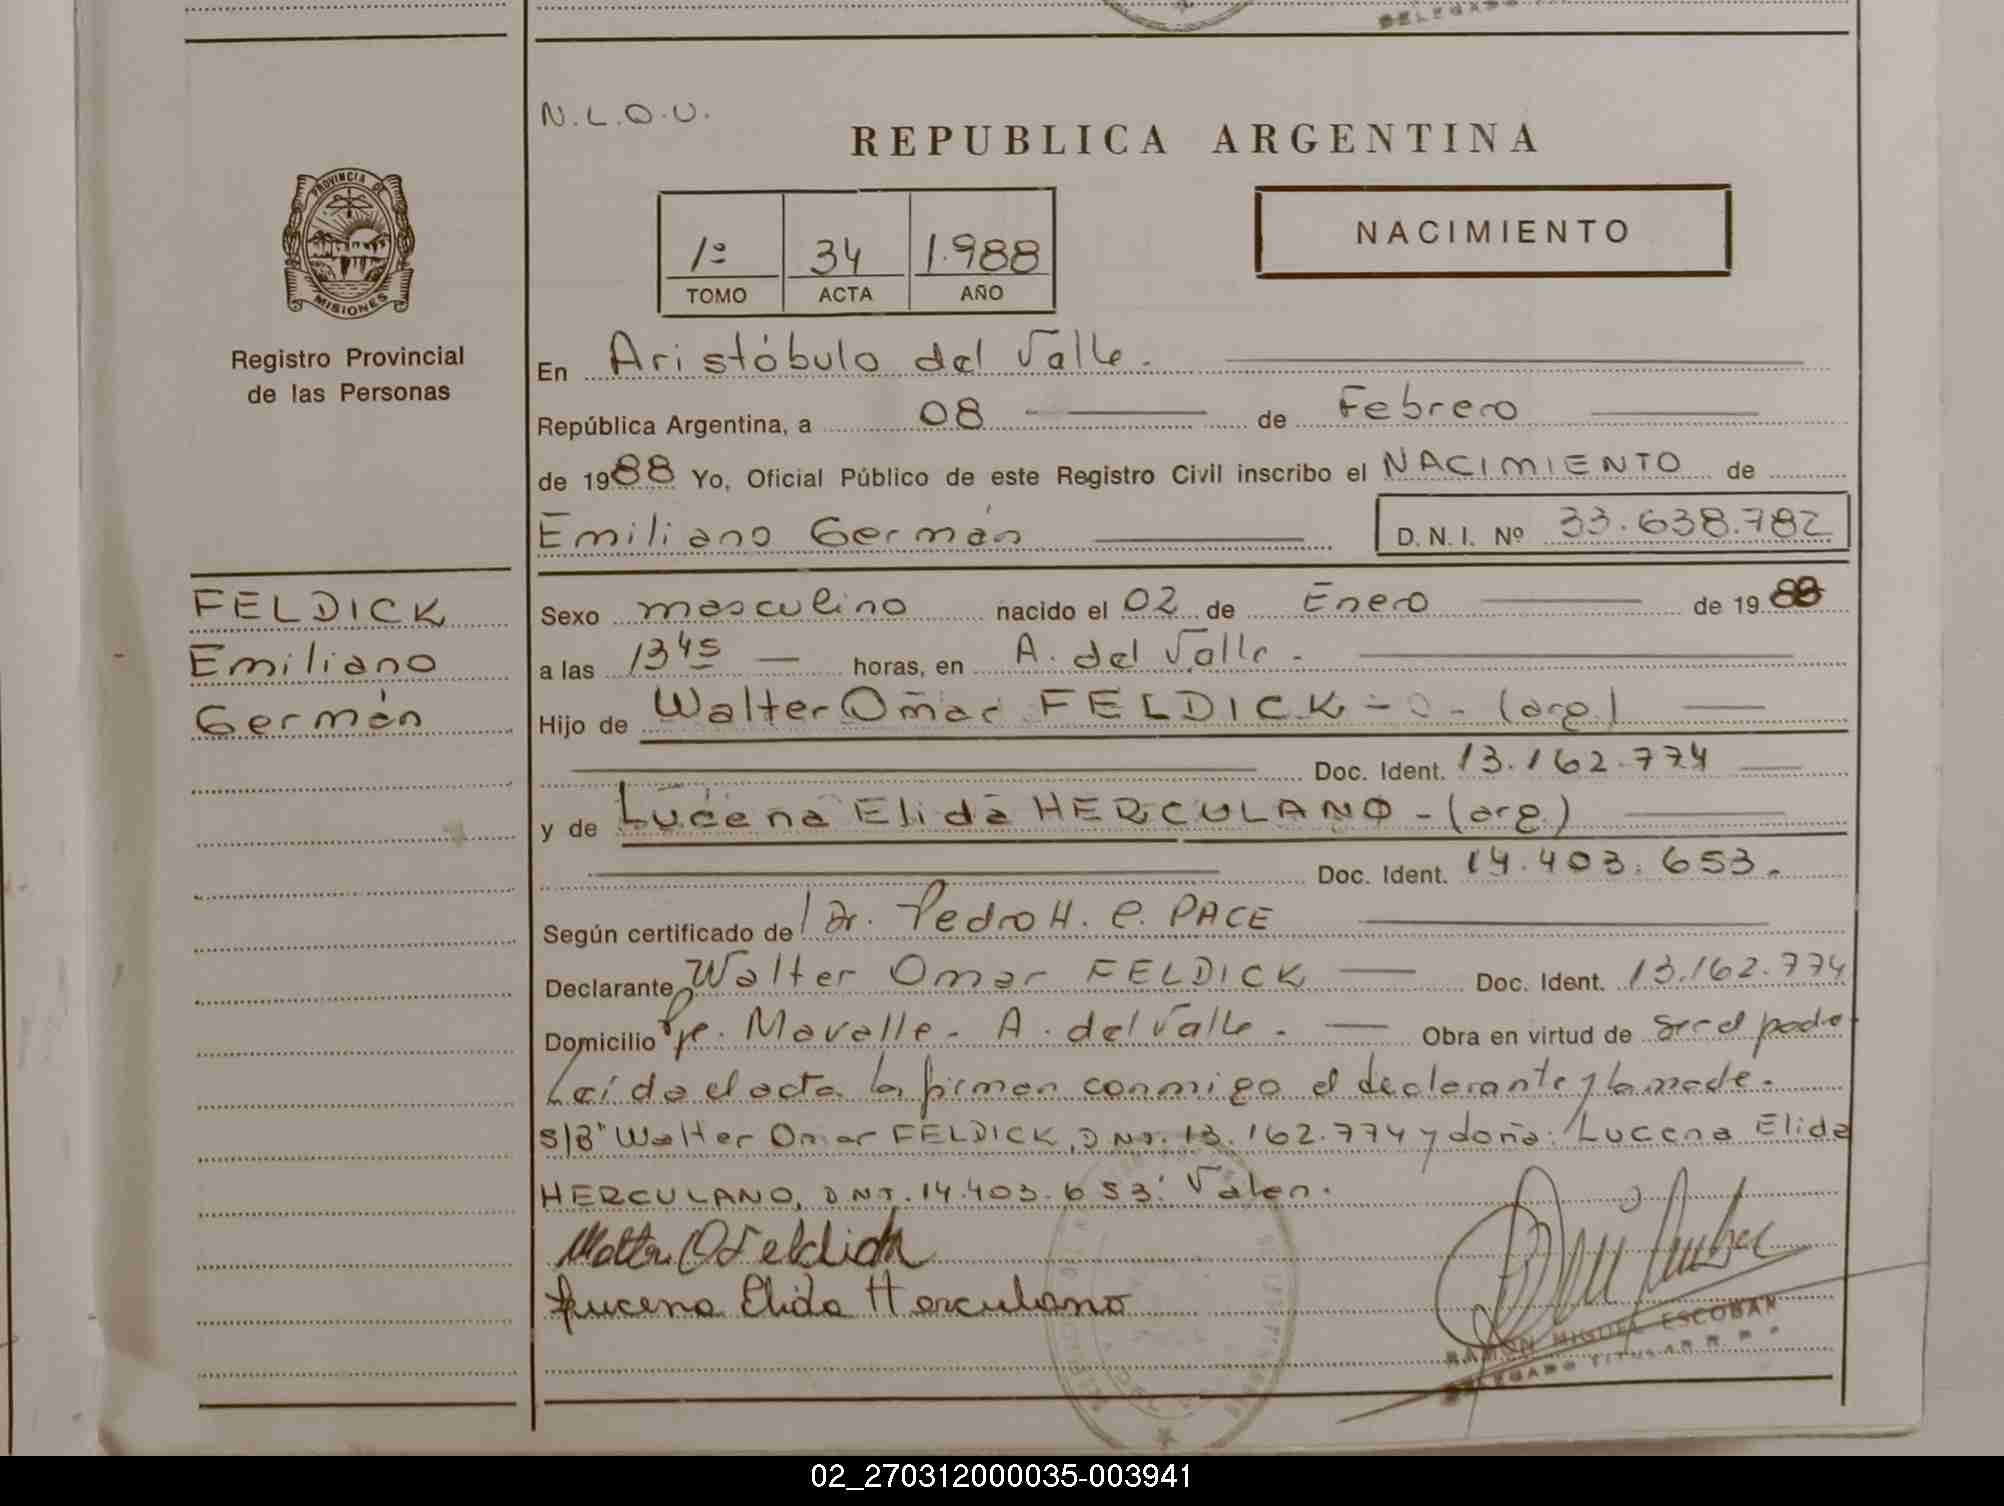 N.L.O.U.
REPUBLICA ARGENTINA
PROVINCIA DE
MISIONES
Registro Provincial
de las Personas
1º 34 1.988
TOMO ACTA AÑO
NACIMIENTO
En Aristóbulo del Valle.
República Argentina, a 08 de Febrero
de 1988 Yo, Oficial Público de este Registro Civil inscribo el NACIMIENTO de
Emiliano Germán D.N.I. Nº 33.638.782
FELDICK
Emiliano
Germán
Sexo masculino nacido el 02 de Enero de 1988
a las 13 45 horas, en A. del Valle.
Hijo de Walter Omar FELDICK - (arg.)
Doc. Ident. 13.162.774
y de Lucena Elida HERCULANO - (arg.)
Doc. Ident. 14.403.653.
Según certificado de Dr. Pedro H. C. PACE
Declarante Walter Omar FELDICK Doc. Ident. 13.162.774
Domicilio Pje. Mavalle - A. del Valle. Obra en virtud de ser el padre
Leída el acta la firman conmigo el declarante y la madre.
S/B" Walter Omar FELDICK, DNI. 13.162.774 y doña: Lucena Elida
HERCULANO, DNI. 14.403.653: Valen.
Walter O Feldick
Lucena Elida Herculano
RAMON MIGUEL ESCOBAR
DELEGADO TITULAR
02_270312000035-003941